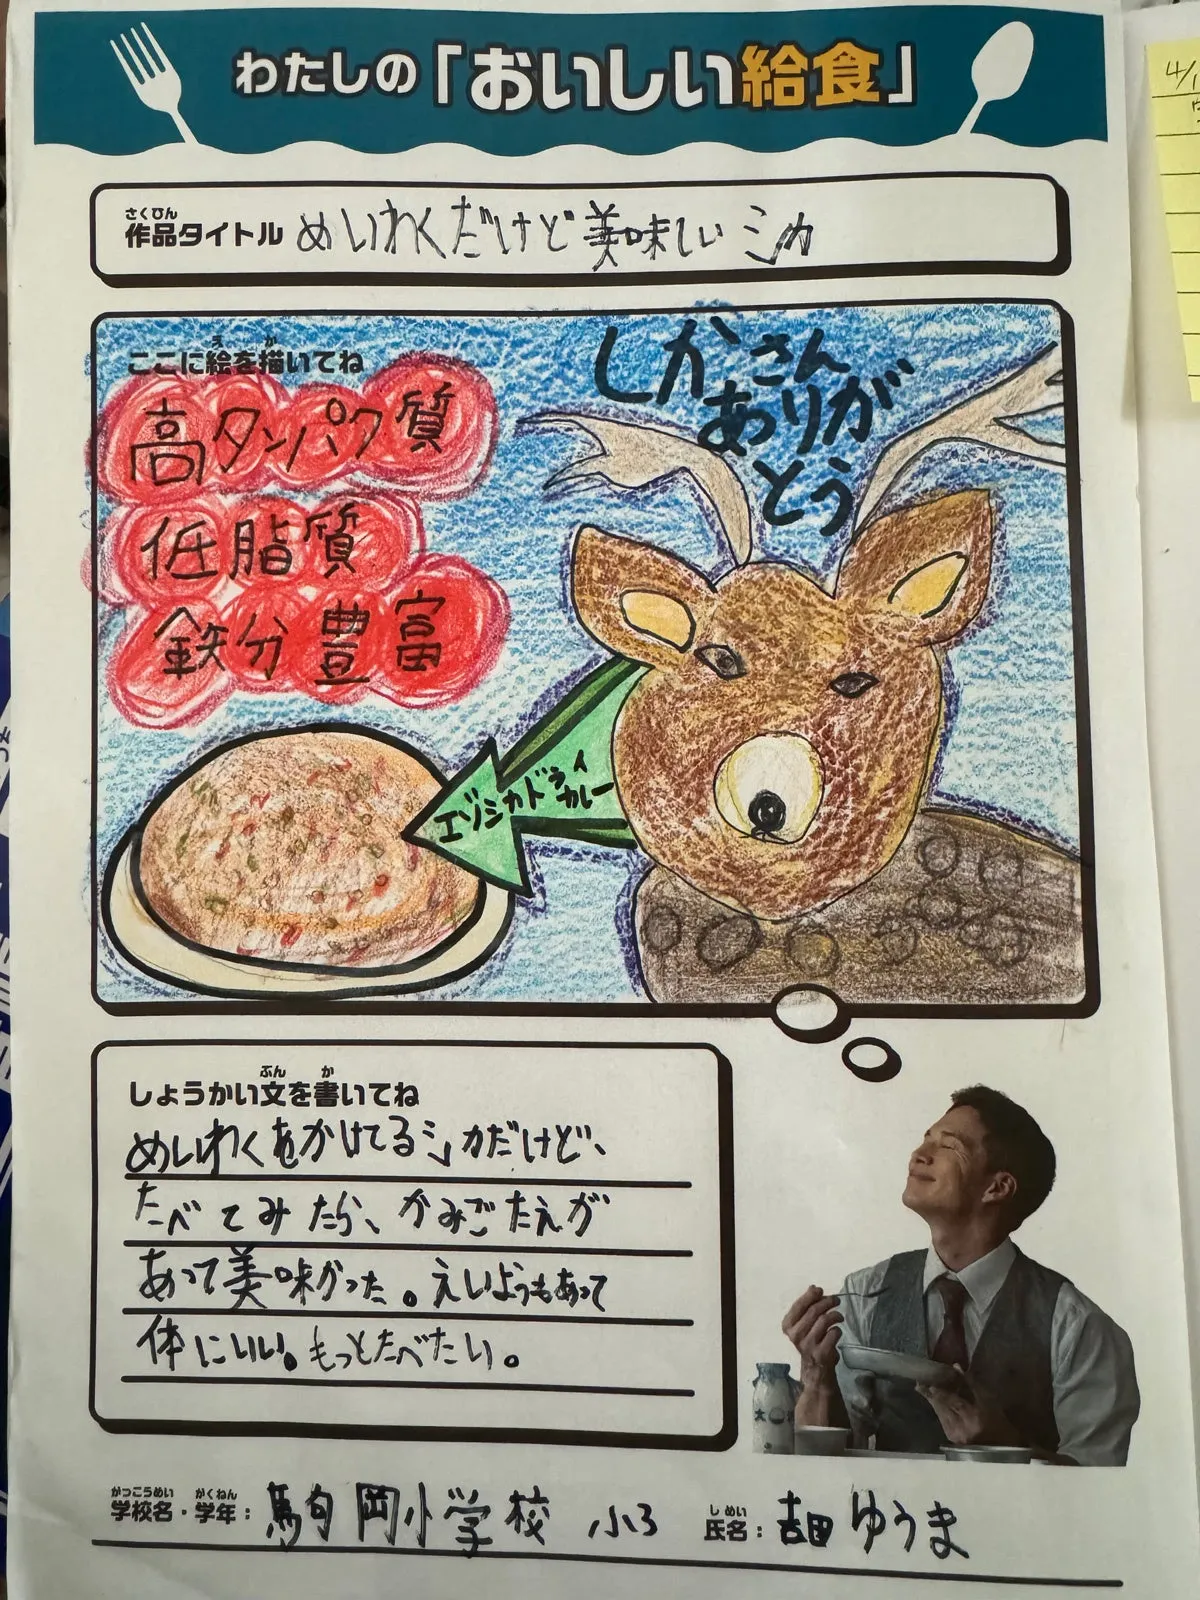 わたしの「おいしい給食」
さくひん
作品タイトル めいわくだけど美味しいシカ
え か
ここに絵を描いてね
しかさん
ありが
とう
高タンパク質
低脂質
鉄分豊富
エゾシカドライ
カレー
ぶん か
しょうかい文を書いてね
めいわくをかけてるシカだけど、
たべてみたら、かみごたえが
あって美味かった。えいようもあって
体にいい。もっとたべたい。
がっこうめい がくねん
学校名・学年: 駒岡小学校 小3
しめい
氏名: 吉田ゆうま
4/1